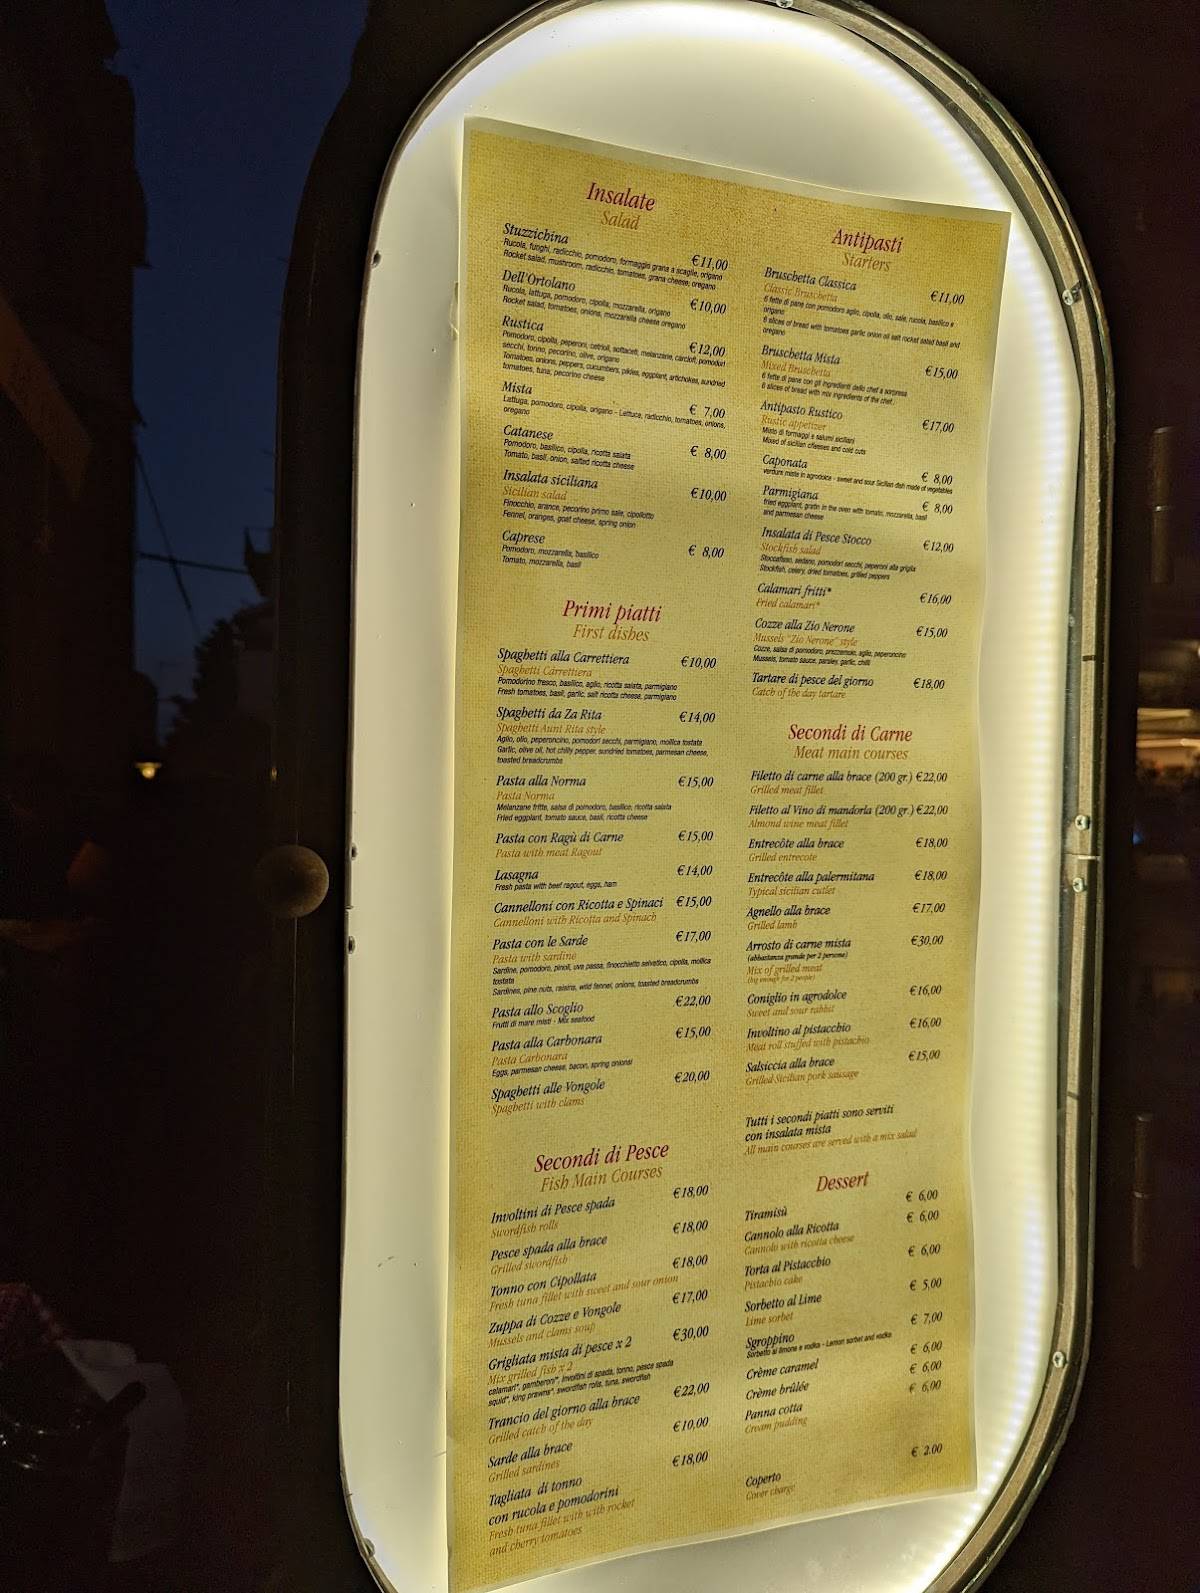 Insalate
Salad
Stuzzichina
€11,00
Rucola, funghi, radicchio, pomodoro, formaggio grana a scaglie, origano
Rocket salad, mushroom, radicchio, tomatoes, grana cheese, oregano
Dell'Ortolano
€10,00
Rucola, lattuga, pomodoro, cipolla, mozzarella, origano
Rocket salad, tomatoes, onions, mozzarella cheese oregano
Rustica
€12,00
Pomodoro, cipolla, peperoni, cetrioli, sottaceti, melanzane, carciofi, pomodori
secchi, tonno, pecorino, olive, origano
Tomatoes, onions, peppers, cucumbers, pikles, eggplant, artichokes, sundried
tomatoes, tuna, pecorino cheese
Mista
€ 7,00
Lattuga, pomodoro, cipolla, origano - Lettuce, radicchio, tomatoes, onions,
oregano
Catanese
€ 8,00
Pomodoro, basilico, cipolla, ricotta salata
Tomato, basil, onion, salted ricotta cheese
Insalata siciliana
€10,00
Sicilian salad
Finocchio, arance, pecorino primo sale, cipollotto
Fennel, oranges, goat cheese, spring onion
Caprese
€ 8,00
Pomodoro, mozzarella, basilico
Tomato, mozzarella, basil
Primi piatti
First dishes
Spaghetti alla Carrettiera
€10,00
Spaghetti Carrettiera
Pomodorino fresco, basilico, aglio, ricotta salata, parmigiano
Fresh tomatoes, basil, garlic, salt ricotta cheese, parmigiano
Spaghetti da Za Rita
€14,00
Spaghetti Aunt Rita style
Aglio, olio, peperoncino, pomodori secchi, parmigiano, mollica tostata
Garlic, olive oil, hot chilly pepper, sundried tomatoes, parmesan cheese,
toasted breadcrumbs
Pasta alla Norma
€15,00
Pasta Norma
Melanzane fritte, salsa di pomodoro, basilico, ricotta salata
Fried eggplant, tomato sauce, basil, ricotta cheese
Pasta con Ragù di Carne
€15,00
Pasta with meat Ragout
Lasagna
€14,00
Fresh pasta with beef ragout, eggs, ham
Cannelloni con Ricotta e Spinaci
€15,00
Cannelloni with Ricotta and Spinach
Pasta con le Sarde
€17,00
Pasta with sardine
Sardine, pomodoro, pinoli, uva passa, finocchietto selvatico, cipolla, mollica
tostata
Sardines, pine nuts, raisins, wild fennel, onions, toasted breadcrumbs
Pasta allo Scoglio
€22,00
Frutti di mare misti - Mix seafood
Pasta alla Carbonara
€15,00
Pasta Carbonara
Eggs, parmesan cheese, bacon, spring onionsi
Spaghetti alle Vongole
€20,00
Spaghetti with clams
Secondi di Pesce
Fish Main Courses
Involtini di Pesce spada
€18,00
Swordfish rolls
Pesce spada alla brace
€18,00
Grilled swordfish
Tonno con Cipollata
€18,00
Fresh tuna fillet with sweet and sour onion
Zuppa di Cozze e Vongole
€17,00
Mussels and clams soup
Grigliata mista di pesce x 2
€30,00
Mix grilled fish x 2
calamari*, gamberoni*, involtini di spada, tonno, pesce spada
squid*, king prawns*, swordfish rolls, tuna, swordfish
Trancio del giorno alla brace
€22,00
Grilled catch of the day
Sarde alla brace
€10,00
Grilled sardines
Tagliata di tonno
€18,00
con rucola e pomodorini
Fresh tuna fillet with with rocket
and cherry tomatoes
Antipasti
Starters
Bruschetta Classica
€11,00
Classic Bruschetta
6 fette di pane con pomodoro aglio, cipolla, olio, sale, rucola, basilico e
origano
6 slices of bread with tomatoes garlic onion oil salt rocket salad basil and
oregano
Bruschetta Mista
€15,00
Mixed Bruschetta
6 fette di pane con gli ingredienti dello chef a sorpresa
6 slices of bread with mix ingredients of the chef.
Antipasto Rustico
€17,00
Rustic appetizer
Misto di formaggi e salumi siciliani
Mixed of sicilian cheeses and cold cuts
Caponata
€ 8,00
verdure miste in agrodolce - sweet and sour Sicilian dish made of vegetables
Parmigiana
€ 8,00
fried eggplant, gratin in the oven with tomato, mozzarella, basil
and parmesan cheese
Insalata di Pesce Stocco
€12,00
Stockfish salad
Stoccafisso, sedano, pomodori secchi, peperoni alla griglia
Stockfish, celery, dried tomatoes, grilled peppers
Calamari fritti*
€16,00
Fried calamari*
Cozze alla Zio Nerone
€15,00
Mussels "Zio Nerone" style
Cozze, salsa di pomodoro, prezzemolo, aglio, peperoncino
Mussels, tomato sauce, parsley, garlic, chilli
Tartare di pesce del giorno
€18,00
Catch of the day tartare
Secondi di Carne
Meat main courses
Filetto di carne alla brace (200 gr.) €22,00
Grilled meat fillet
Filetto al Vino di mandorla (200 gr.) €22,00
Almond wine meat fillet
Entrecôte alla brace
€18,00
Grilled entrecote
Entrecôte alla palermitana
€18,00
Typical sicilian cutlet
Agnello alla brace
€17,00
Grilled lamb
Arrosto di carne mista
€30,00
(abbastanza grande per 2 persone)
Mix of grilled meat
(big enough for 2 people)
Coniglio in agrodolce
€16,00
Sweet and sour rabbit
Involtino al pistacchio
€16,00
Meat roll stuffed with pistachio
Salsiccia alla brace
€15,00
Grilled Sicilian pork sausage
Tutti i secondi piatti sono serviti
con insalata mista
All main courses are served with a mix salad
Dessert
Tiramisù
€ 6,00
Cannolo alla Ricotta
€ 6,00
Cannolo with ricotta cheese
Torta al Pistacchio
€ 6,00
Pistachio cake
Sorbetto al Lime
€ 5,00
Lime sorbet
Sgroppino
€ 7,00
Sorbetto al limone e vodka - Lemon sorbet and vodka
Crème caramel
€ 6,00
Crème brûlée
€ 6,00
Panna cotta
€ 6,00
Cream pudding
Coperto
€ 2.00
Cover charge